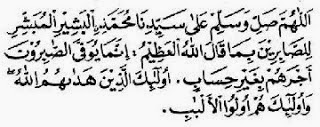 اَللّٰهُمَّ صَلِّ وَسَلِّمْ عَلٰى سَيِّدِنَا مُحَمَّدِ ࣙالْبَشِيْرِ الْمُبَشِّرِ
لِلصَّابِرِيْنَ بِمَا قَالَ اللهُ الْعَظِيْمُ : اِنَّمَا يُوَفَّى الصّٰبِرُوْنَ
اَجْرَهُمْ بِغَيْرِ حِسَابٍ. أُولٰئِكَ الَّذِيْنَ هَدٰىهُمُ اللهُ
وَأُولٰئِكَ هُمْ أُولُوا الْأَلْبٰبِ.